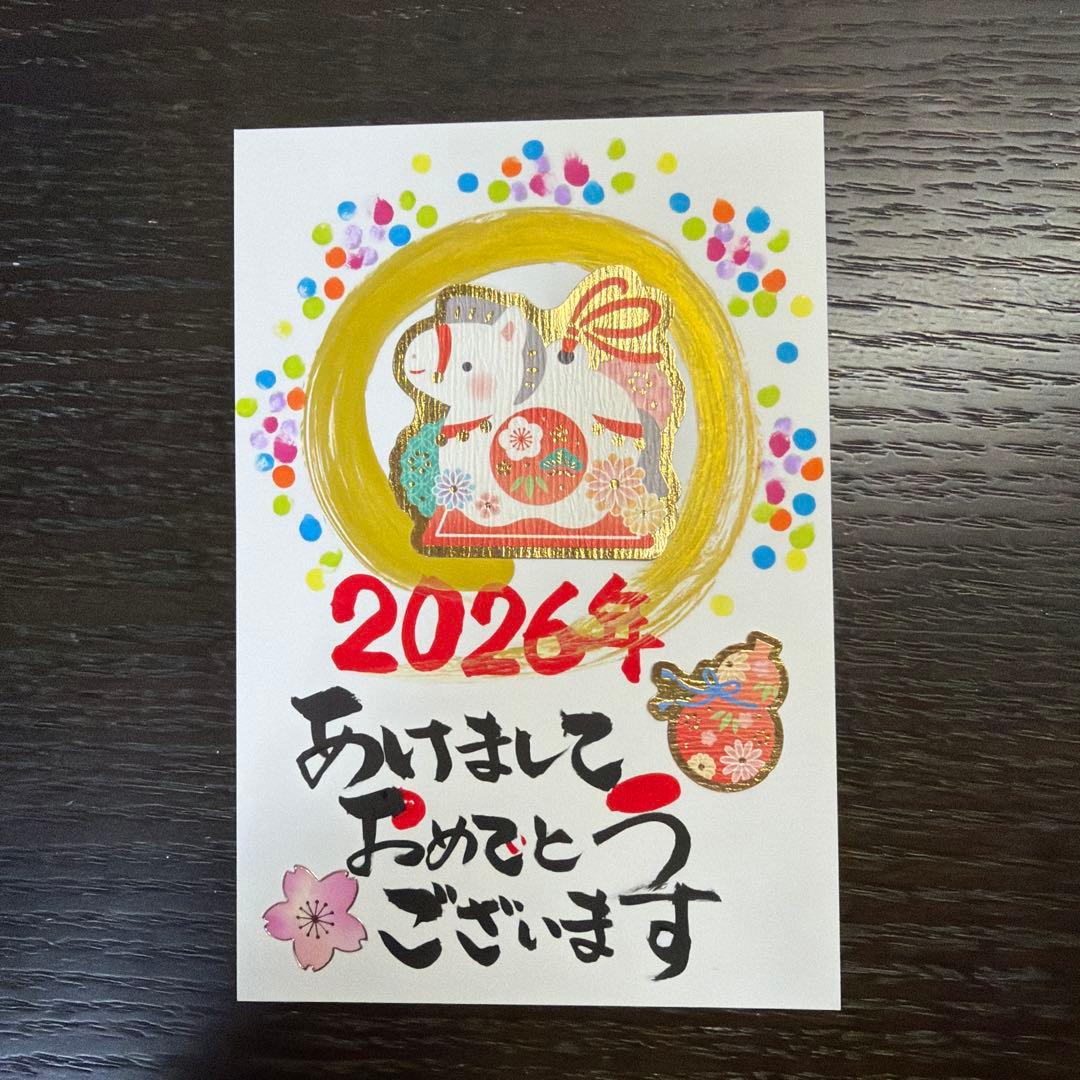 2026年
あけまして
おめでとう
ございます